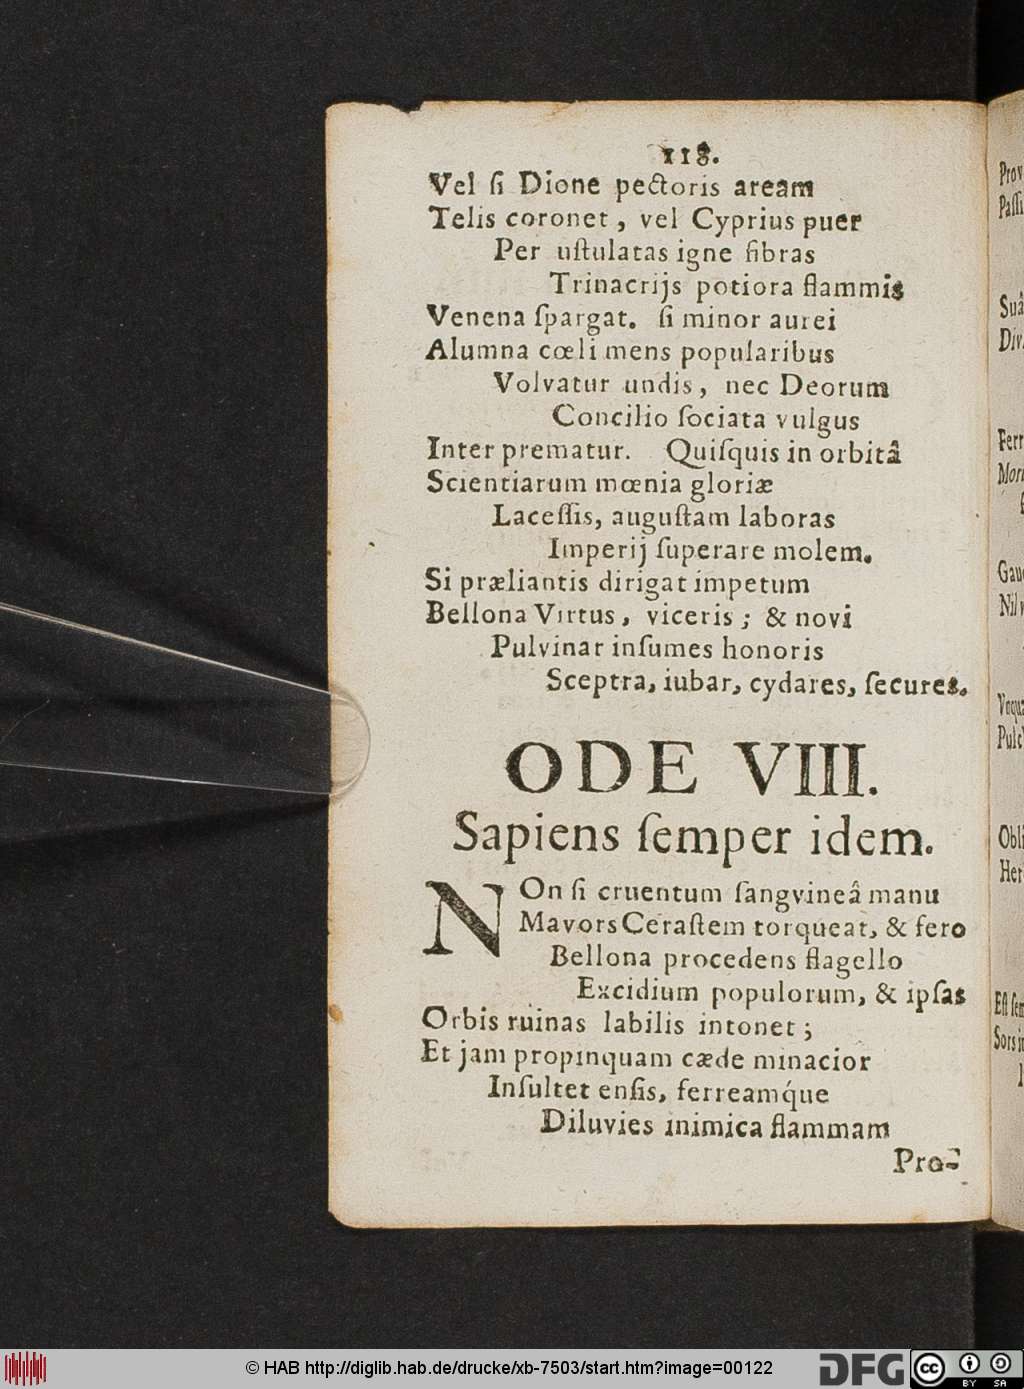 118.
Vel ſi Dione pectoris aream
Telis coronet, vel Cyprius puer
Per uſtulatas igne fibras
Trinacrijs potiora flammis
Venena ſpargat. ſi minor aurei
Alumna cœli mens popularibus
Volvatur undis, nec Deorum
Concilio ſociata vulgus
Inter prematur. Quiſquis in orbitâ
Scientiarum mœnia gloriæ
Laceſſis, auguſtam laboras
Imperij ſuperare molem.
Si præliantis dirigat impetum
Bellona Virtus, viceris; & novi
Pulvinar inſumes honoris
Sceptra, iubar, cydares, ſecures.
ODE VIII.
Sapiens ſemper idem.
NOn ſi cruentum ſangvineâ manu
Mavors Ceraſtem torqueat, & fero
Bellona procedens flagello
Excidium populorum, & ipſas
Orbis ruinas labilis intonet;
Et jam propinquam cæde minacior
Inſultet enſis, ferreamq́ue
Diluvies inimica flammam
Pro-
Prov
Paſſi
Suâ
Div
Ferr
Gau
Nil
Pulc
Obli
Her
Eſt ſem
Sors i
© HAB http://diglib.hab.de/drucke/xb-7503/start.htm?image=00122
DFG
cc
BY SA